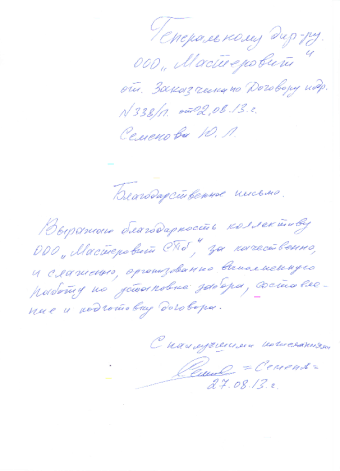 Генеральному дир-ру.
ООО „Мастеровит"
от. Заказчика по Договору подр.
N338/п. от 02.08.13 г.
Семенова Ю. Л.
Благодарственное письмо.
Выражаю благодарность коллективу
ООО „Мастеровит СПб", за качественно,
и слаженно, организованно выполненную
работу по установке забора, составле-
ние и подготовку договора.
С наилучшими пожеланиями
=Семенов=
27.08.13 г.